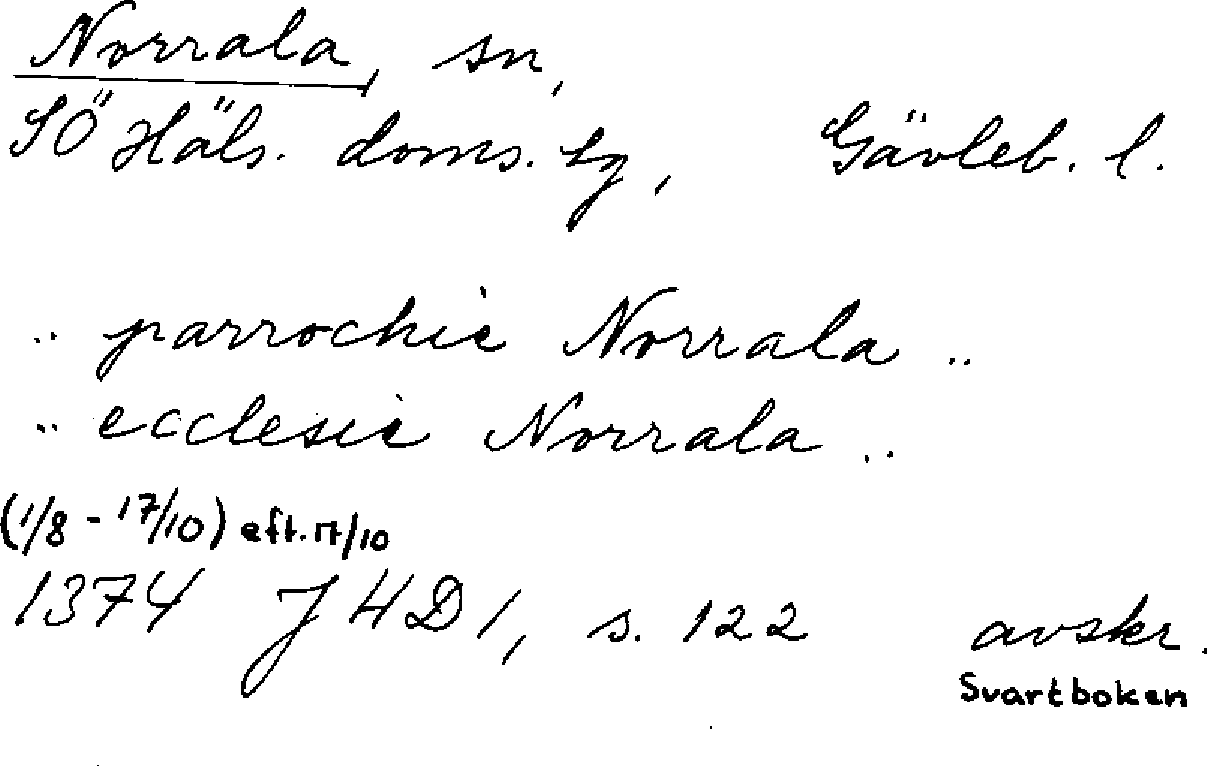 Norrala, sn,
SÖ Häls. doms. sg, Gävleb. l.
.. parrochie Norrala ..
.. ecclesie Norrala ..
(1/8 - 17/10) eft. 17/10
1374 J 4 D 1, s. 122 avskr.
Svartboken